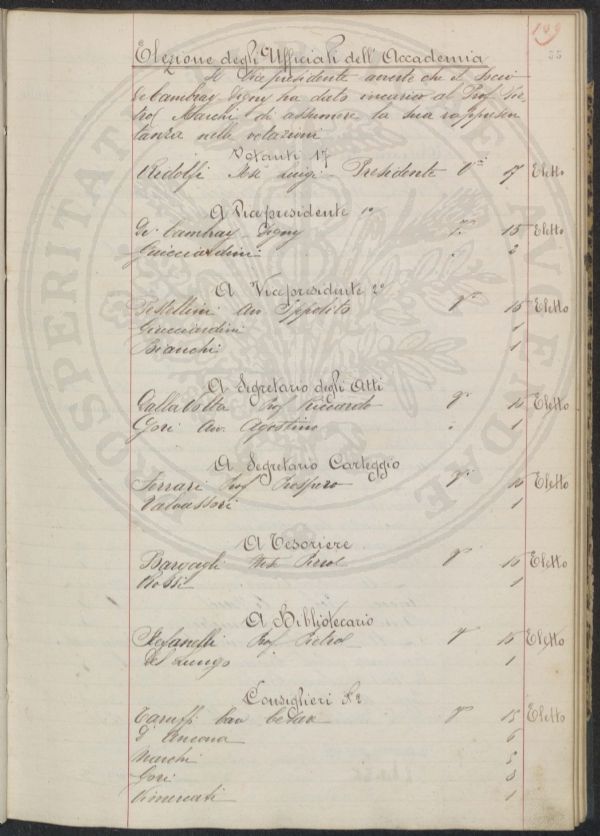 199
55
Elezione degli Ufficiali dell'Accademia
Il Vicepresidente avverte che il Socio
De Cambray Digny ha dato incarico al Prof. Vit
Marchi di assumere la sua rappresen
tanza nelle votazioni
Votanti 17
Ridolfi Mse Luigi - Presidente V.ti 17 Eletto
A Vicepresidente 1º
De Cambray Digny V. 15 Eletto
Guicciardini " 2
A Vicepresidente 2º
Pestellini Av Ippolito V. 15 Eletto
Guicciardini 1
Bianchi 1
A Segretario degli Atti
Dalla Volta Prof Riccardo V. 16 Eletto
Gori Av. Agostino " 1
A Segretario Carteggio
Ferrari Prof Prospero V. 16 Eletto
Valvassori 1
A Tesoriere
Bargagli Mse Piero V. 16 Eletto
Rossi 1
A Bibliotecario
Stefanelli Prof Pietro V. 16 Eletto
Del Lungo 1
Consiglieri Nº 2
Taruffi Cav Cesare V. 15 Eletto
D'Ancona 6
Marchi 5
Gori 3
Vimercati 1
PROSPERITATI PUBLICAE AUGENDAE